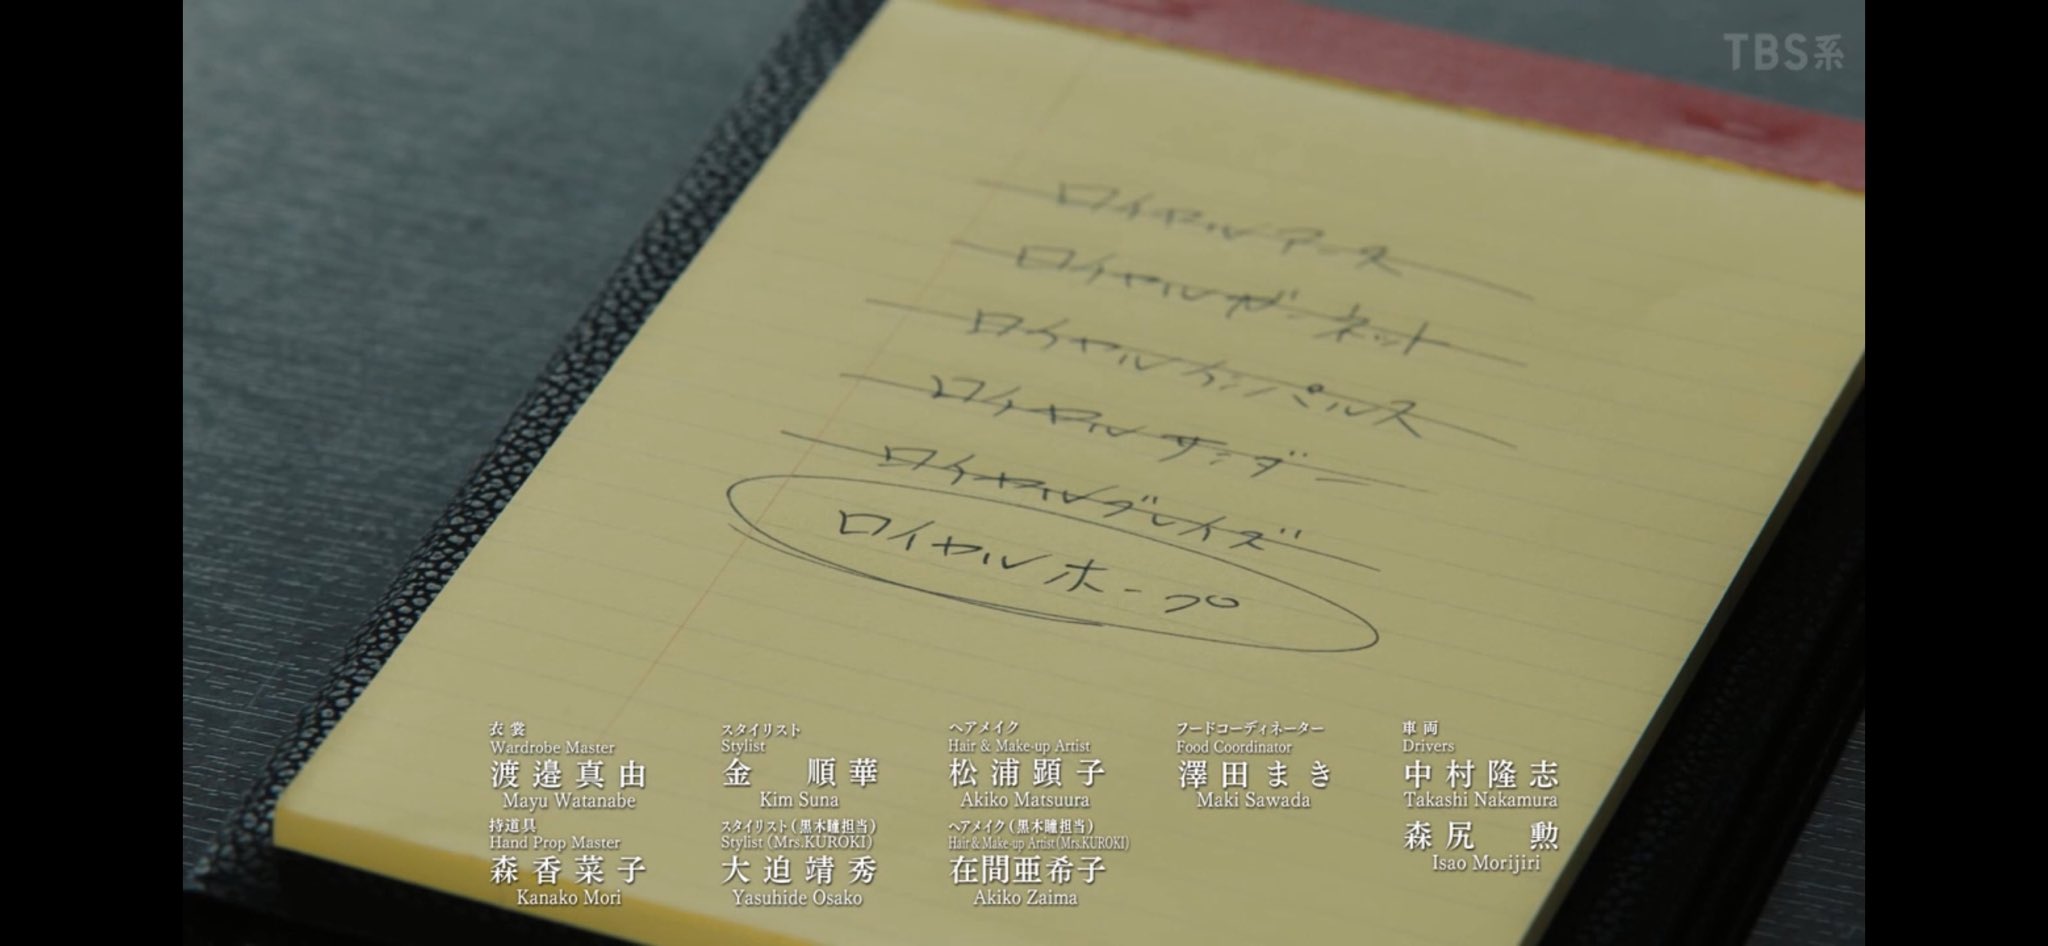 TBS系
ロイヤルアース
ロイヤルガーネット
ロイヤルインパルス
ロイヤルサンダー
ロイヤルブレイズ
ロイヤルホープ
衣裳
Wardrobe Master
渡邉真由
Mayu Watanabe
持道具
Hand Prop Master
森香菜子
Kanako Mori
スタイリスト
Stylist
金 順華
Kim Suna
スタイリスト(黒木瞳担当)
Stylist (Mrs.KUROKI)
大迫靖秀
Yasuhide Osako
ヘアメイク
Hair & Make-up Artist
松浦顕子
Akiko Matsuura
ヘアメイク(黒木瞳担当)
Hair & Make-up Artist (Mrs.KUROKI)
在間亜希子
Akiko Zaima
フードコーディネーター
Food Coordinator
澤田まき
Maki Sawada
車両
Drivers
中村隆志
Takashi Nakamura
森尻 勲
Isao Morijiri